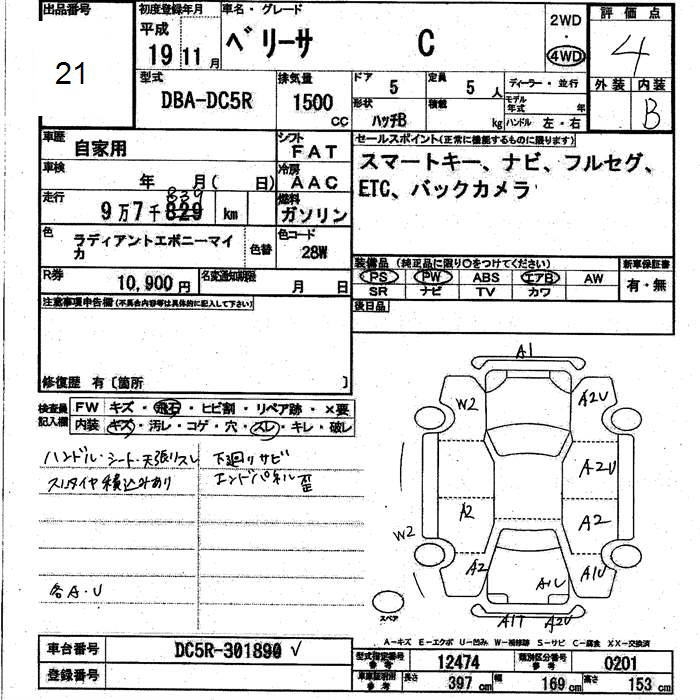 出品番号
21
初度登録年月
平成
19 11 月
車名・グレード
ベリーサ C
2WD
・
4WD
評価点
4
外装 内装
B
型式
DBA-DC5R
排気量
1500
CC
ドア 5
定員 5 人
形状 ハッチB
積載 kg
ディーラー・並行
モデル年式 年
ハンドル 左・右
車歴 自家用
シフト FAT
車検 年 月( 日)
冷房 AAC
走行 9万7千829 839 km
燃料 ガソリン
色 ラディアントエボニーマイカ
色替
色コード 28W
R券 10,900円
名変通知期限 月 日
セールスポイント(正常に機能するものに限ります)
スマートキー、ナビ、フルセグ、
ETC、バックカメラ
装備品 (純正品に限り○をつけてください)
PS PW ABS エアB AW
SR ナビ TV カワ
新車保証書
有・無
後日品
注意事項申告欄(不具合内容等は具体的に記入して下さい)
修復歴 有〔箇所 〕
検査員
記入欄
FW キズ・飛石・ヒビ割・リペア跡・×要
内装 キズ・汚レ・コゲ・穴・スレ・キレ・破レ
ハンドル・シート・天張リスレ
下廻リサビ
スタタイヤ積込みあり
エンドパネル歪
各A・U
A1
W2
A2U
A2U
A2
A2
W2
A2
A1U
A1U
A1T
A2U
スペア
A-キズ E-エクボ U-凹み W-補修跡 S-サビ C-腐食 XX-交換済
車台番号 DC5R-301890 ✓
登録番号
型式指定番号 参考 12474
類別区分番号 参考 0201
車車証明用 参考 長さ 397 cm 幅 169 cm 高さ 153 cm